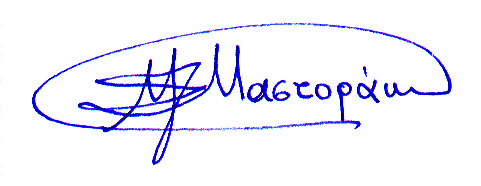 Μαστοράκη